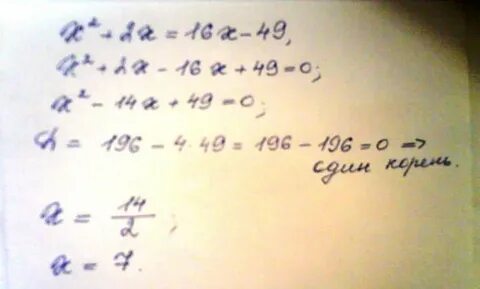 x² + 2x = 16x - 49,
x² + 2x - 16x + 49 = 0;
x² - 14x + 49 = 0;
D = 196 - 4·49 = 196 - 196 = 0 =>
один корень.
x = 14/2;
x = 7.